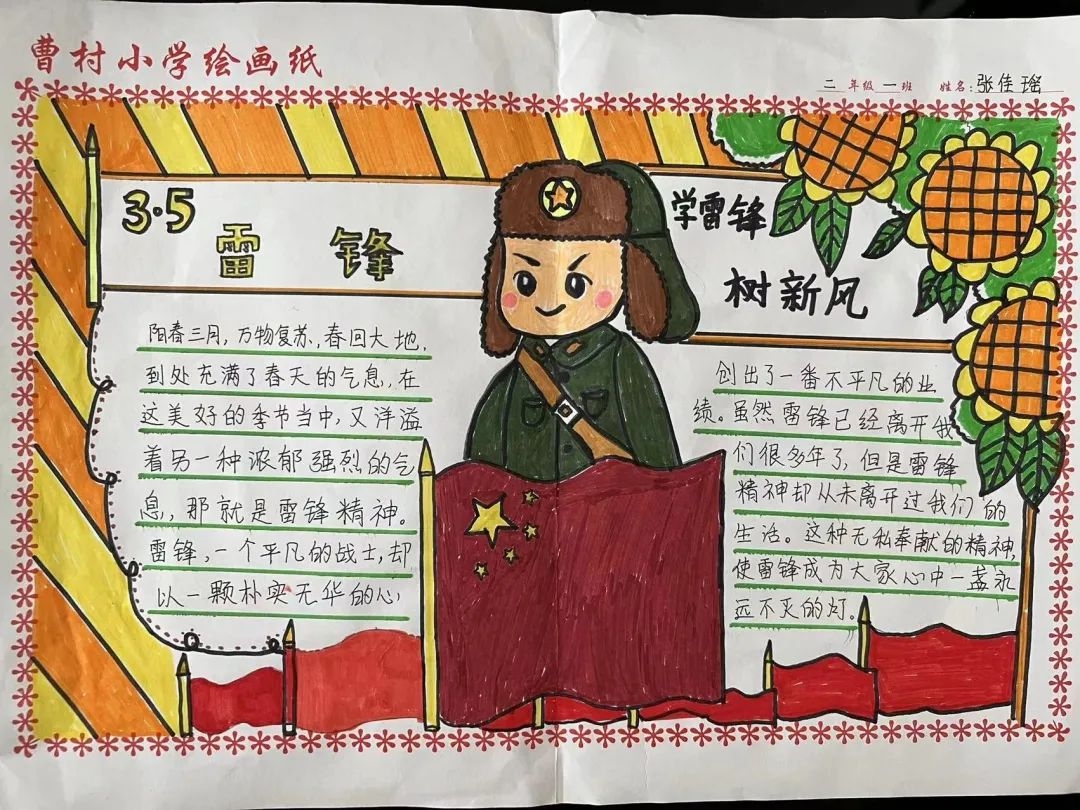 曹村小学绘画纸
二 年级 一 班 姓名:张佳瑶
3·5
雷 锋
学雷锋
树新风
阳春三月,万物复苏,春回大地,
到处充满了春天的气息,在
这美好的季节当中,又洋溢
着另一种浓郁强烈的气
息,那就是雷锋精神。
雷锋,一个平凡的战士,却
以一颗朴实无华的心
创出了一番不平凡的业
绩。虽然雷锋已经离开我
们很多年了,但是雷锋
精神却从未离开过我们的
生活。这种无私奉献的精神,
使雷锋成为大家心中一盏永
远不灭的灯。